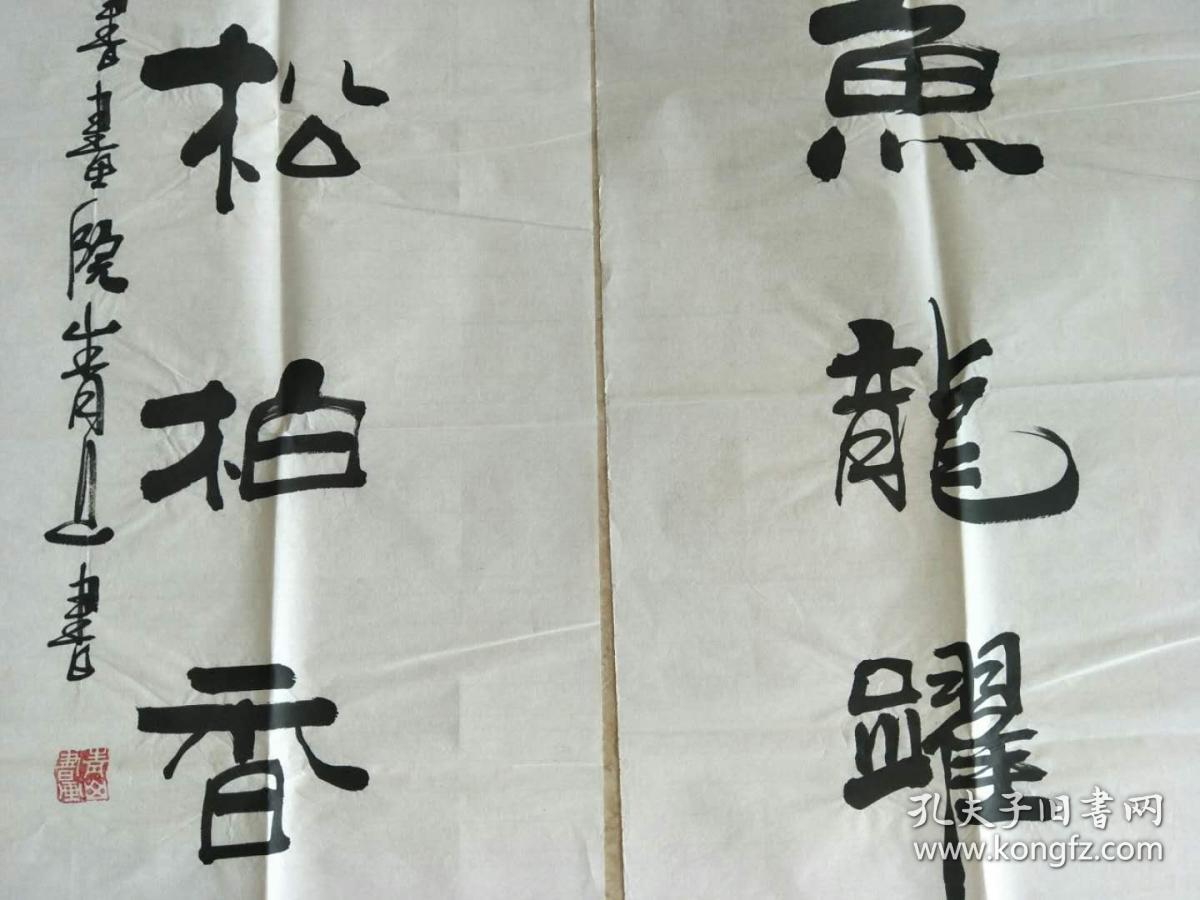 魚龍躍
松柏香
書畫院山青山書
青山書畫
孔夫子旧书网
www.kongfz.com